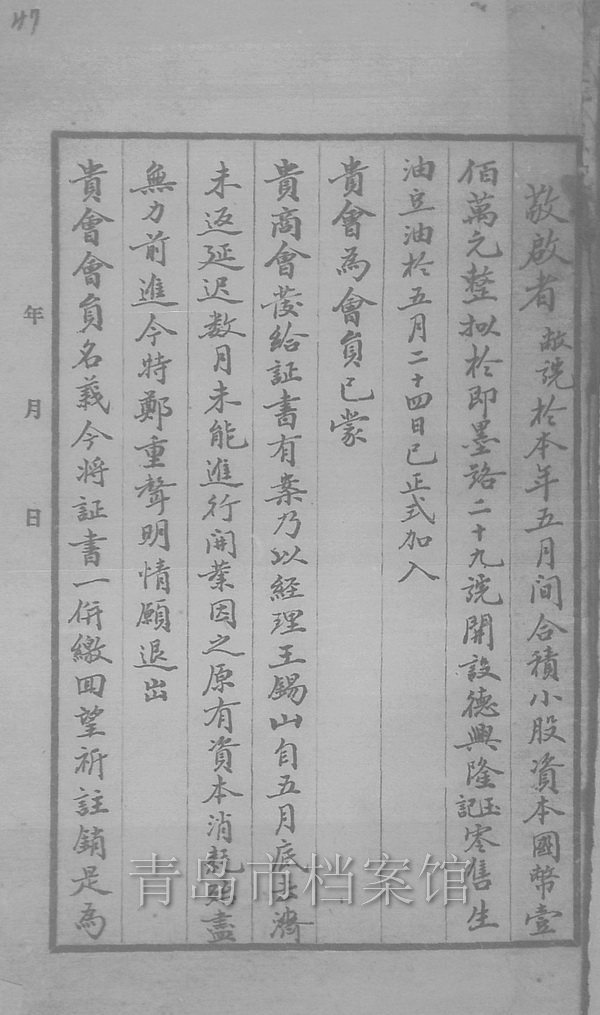 47
敬啟者敝號於本年五月间合積小股資本國幣壹
佰萬元整拟於即墨路二十九號開設德興隆玉記零售生
油豆油於五月二十四日已正式加入
貴會為會員已蒙
貴商會發給証書有案乃以経理王錫山自五月底去濟
未返延迟数月未能進行開業因之原有資本消耗殆盡
無力前進今特鄭重聲明情願退出
貴會會員名義今将証書一併繳回望祈註銷是為
年月日
青岛市档案馆